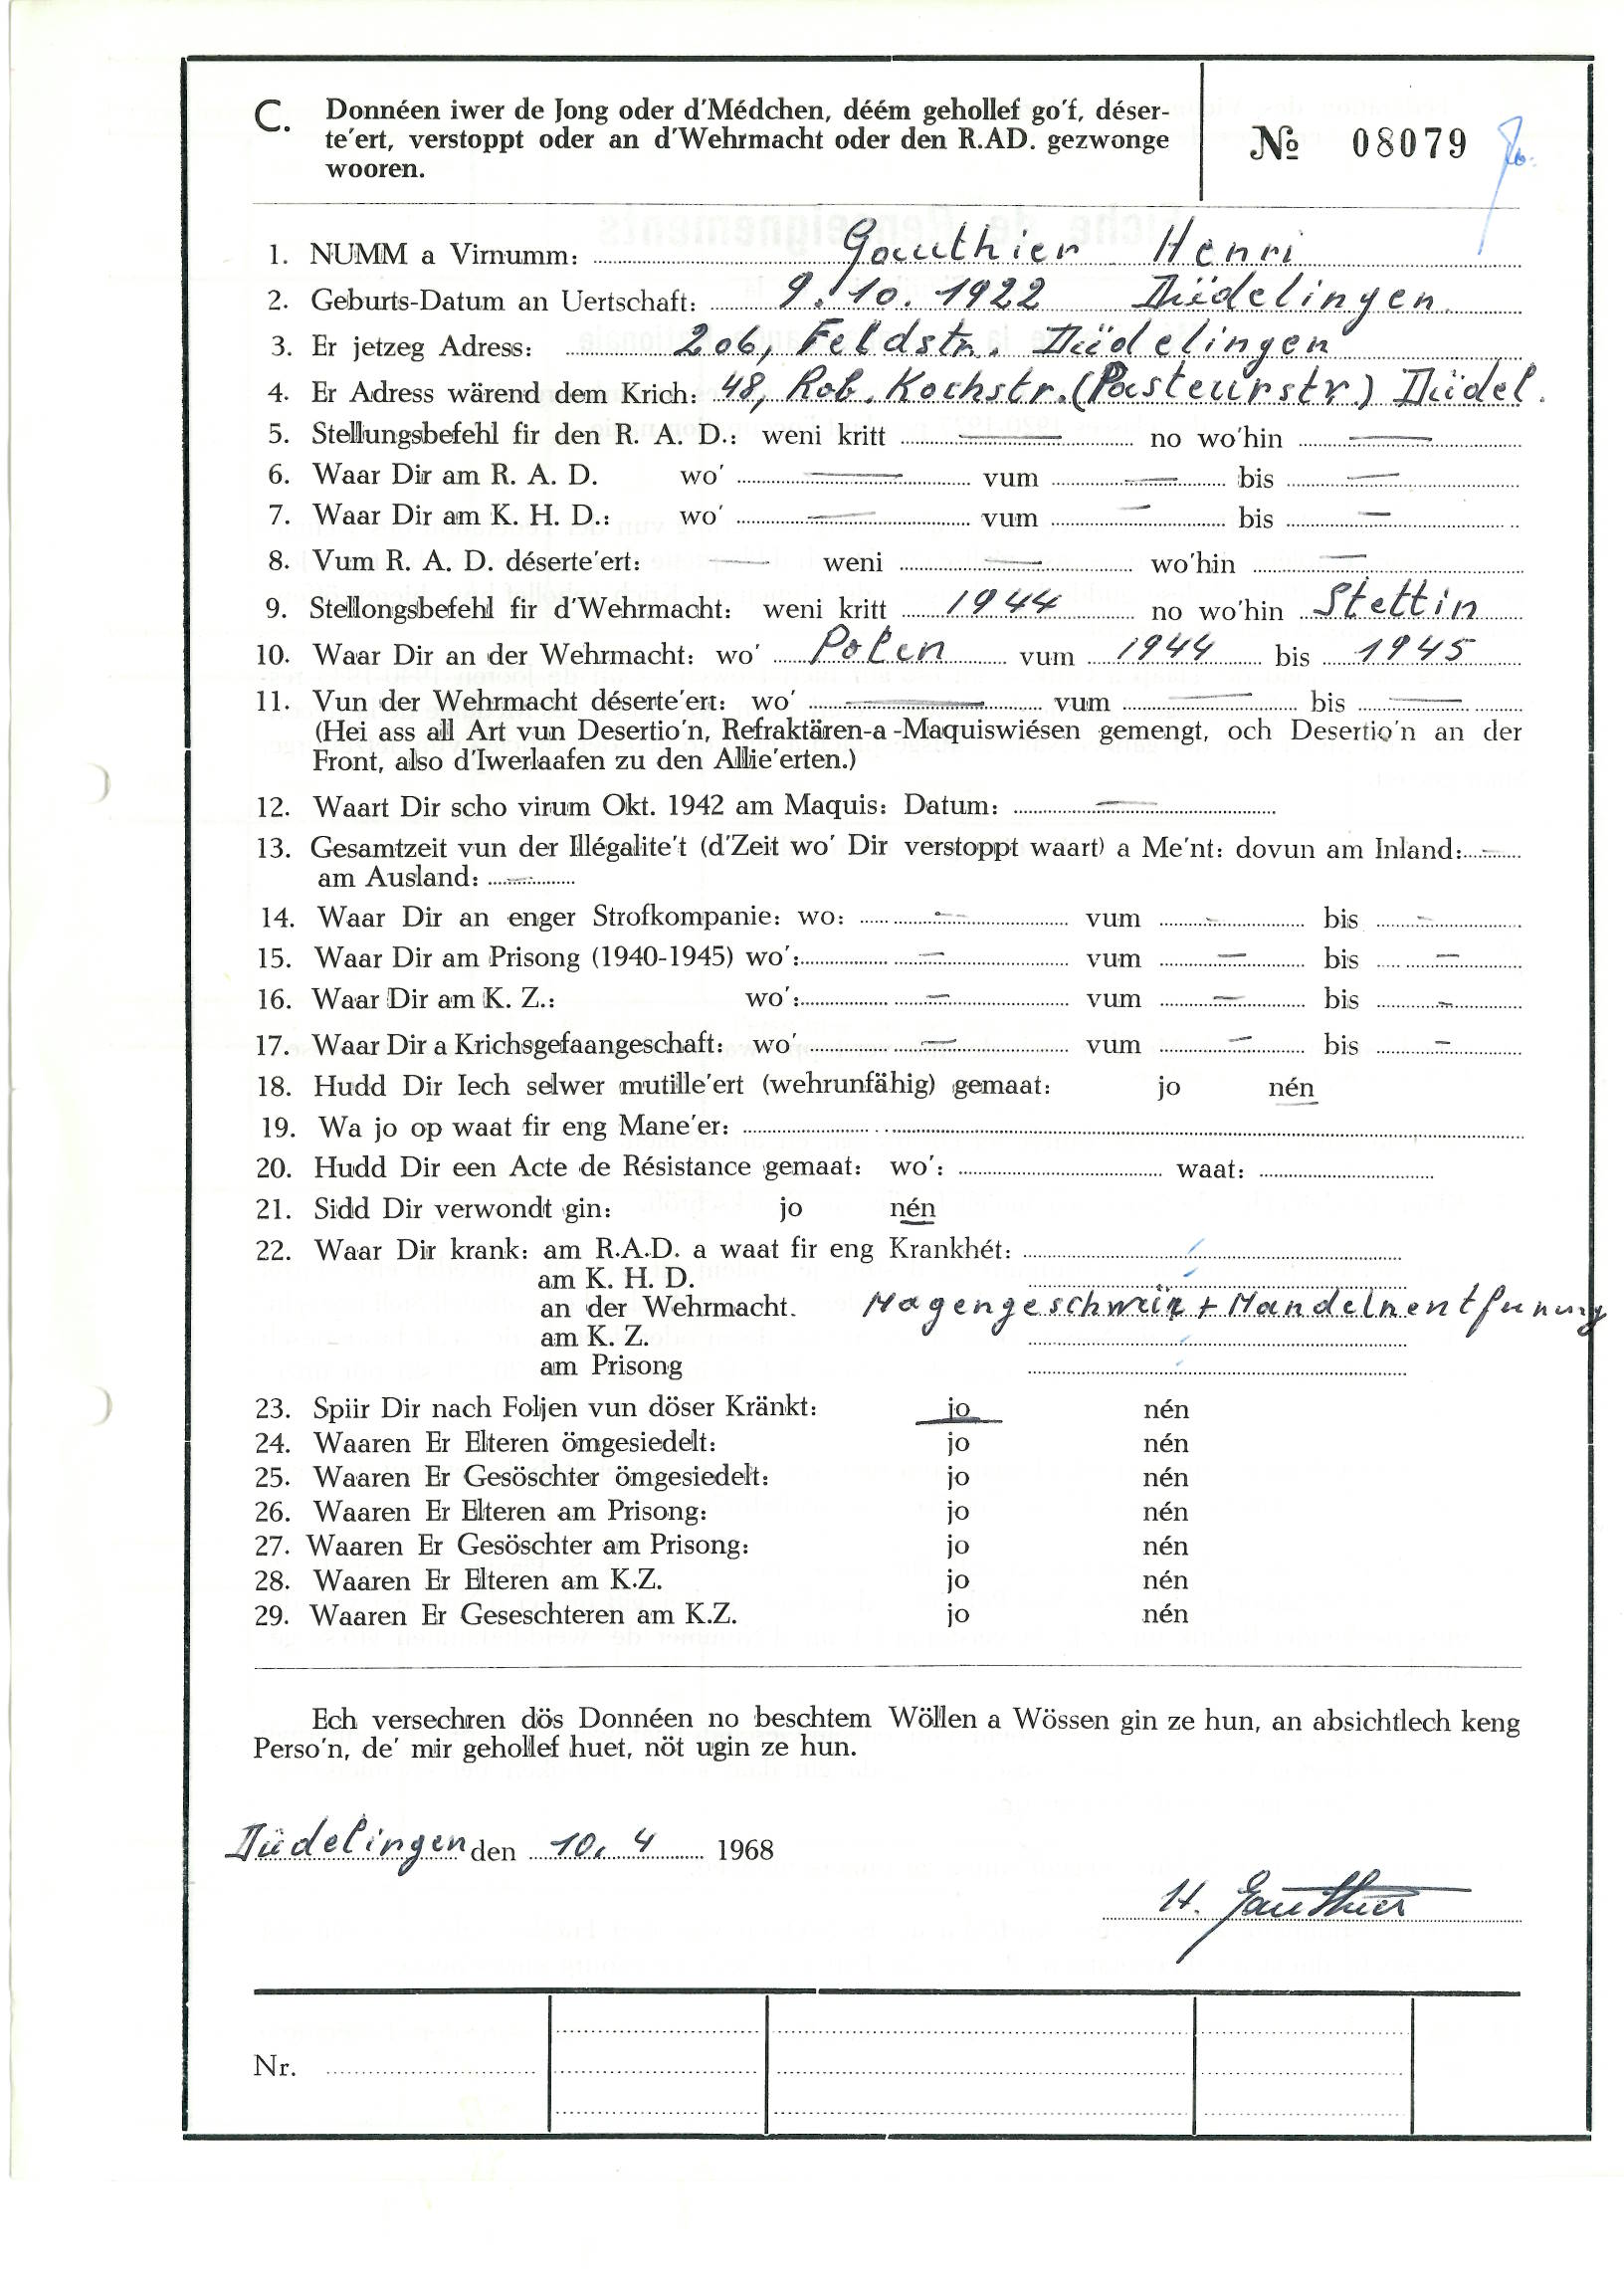 C. Donnéen iwer de Jong oder d'Médchen, déém gehollef go'f, déser-
te'ert, verstoppt oder an d'Wehrmacht oder den R.AD. gezwonge
wooren.
№ 08079
1. NUMM a Virnumm: Gauthier Henri
2. Geburts-Datum an Uertschaft: 9. 10. 1922 Düdelingen.
3. Er jetzeg Adress: 206, Feldstr. Düdelingen
4. Er Adress wärend dem Krich: 48, Rob. Kochstr. (Pasteurstr.) Düdel.
5. Stellungsbefehl fir den R. A. D.: weni kritt — no wo'hin —
6. Waar Dir am R. A. D. wo' — vum — bis —
7. Waar Dir am K. H. D.: wo' — vum — bis —
8. Vum R. A. D. déserte'ert: — weni — wo'hin —
9. Stellongsbefehl fir d'Wehrmacht: weni kritt 1944 no wo'hin Stettin
10. Waar Dir an der Wehrmacht: wo' Polen vum 1944 bis 1945
11. Vun der Wehrmacht déserte'ert: wo' — vum — bis —
(Hei ass all Art vun Desertio'n, Refraktären-a-Maquiswiésen gemengt, och Desertio'n an der
Front, also d'Iwerlaafen zu den Allie'erten.)
12. Waart Dir scho virum Okt. 1942 am Maquis: Datum: —
13. Gesamtzeit vun der Illégalite't (d'Zeit wo' Dir verstoppt waart) a Me'nt: dovun am Inland: —
am Ausland: —
14. Waar Dir an enger Strofkompanie: wo: — vum — bis —
15. Waar Dir am Prisong (1940-1945) wo': — vum — bis —
16. Waar Dir am K. Z.: wo': — vum — bis —
17. Waar Dir a Krichsgefaangeschaft: wo' — vum — bis —
18. Hudd Dir Iech selwer mutille'ert (wehrunfähig) gemaat: jo nén
19. Wa jo op waat fir eng Mane'er:
20. Hudd Dir een Acte de Résistance gemaat: wo': waat:
21. Sidd Dir verwondt gin: jo nén
22. Waar Dir krank: am R.A.D. a waat fir eng Krankhét:
am K. H. D.
an der Wehrmacht. Magengeschwür + Mandelnentfunung
am K. Z.
am Prisong
23. Spiir Dir nach Foljen vun döser Kränkt: jo nén
24. Waaren Er Elteren ömgesiedelt: jo nén
25. Waaren Er Gesöschter ömgesiedelt: jo nén
26. Waaren Er Elteren am Prisong: jo nén
27. Waaren Er Gesöschter am Prisong: jo nén
28. Waaren Er Elteren am K.Z. jo nén
29. Waaren Er Geseschteren am K.Z. jo nén
Ech versechren dös Donnéen no beschtem Wöllen a Wössen gin ze hun, an absichtlech keng
Perso'n, de' mir gehollef huet, nöt ugin ze hun.
Düdelingen den 10. 4 1968
H. Gauthier
Nr.